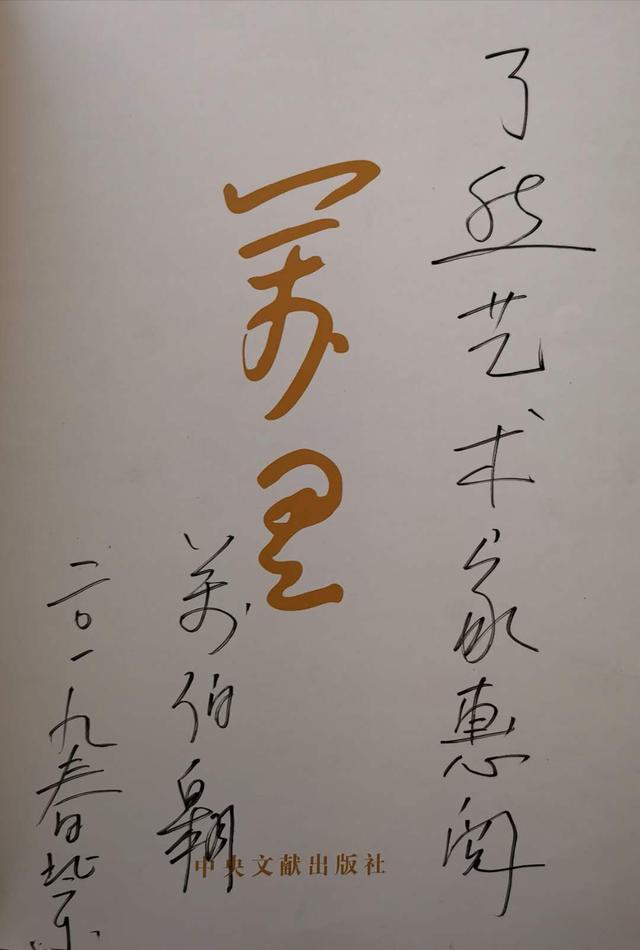 了然艺术家惠阅
萬里
萬伯翱
二〇一九春北京
中央文献出版社